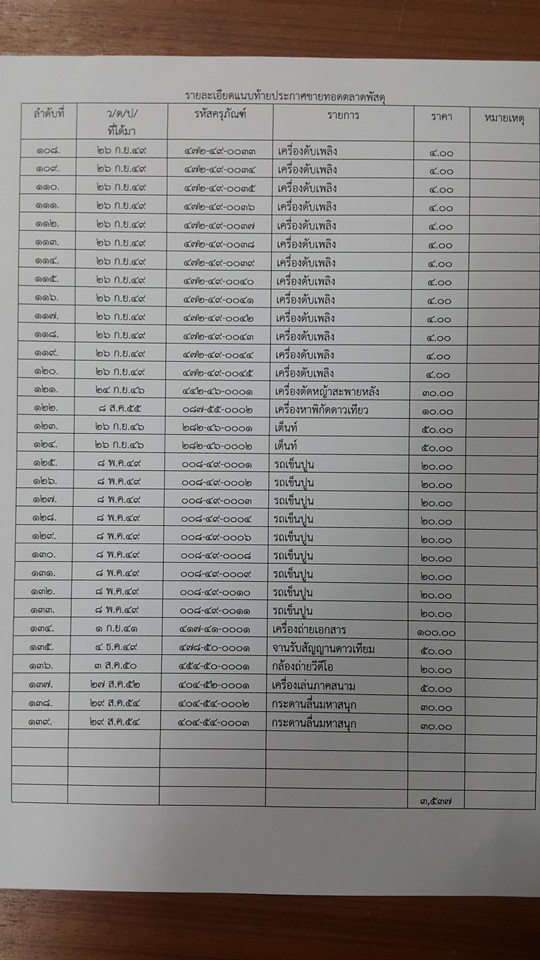 รายละเอียดแนบท้ายประกาศขายทอดตลาดพัสดุ
ลำดับที่ ว/ด/ป/ รหัสครุภัณฑ์ รายการ ราคา หมายเหตุ
ที่ได้มา
๑๐๘. ๒๖ ก.ย.๔๙ ๔๗๒-๔๙-๐๐๓๓ เครื่องดับเพลิง ๔.๐๐
๑๐๙. ๒๖ ก.ย.๔๙ ๔๗๒-๔๙-๐๐๓๔ เครื่องดับเพลิง ๔.๐๐
๑๑๐. ๒๖ ก.ย.๔๙ ๔๗๒-๔๙-๐๐๓๕ เครื่องดับเพลิง ๔.๐๐
๑๑๑. ๒๖ ก.ย.๔๙ ๔๗๒-๔๙-๐๐๓๖ เครื่องดับเพลิง ๔.๐๐
๑๑๒. ๒๖ ก.ย.๔๙ ๔๗๒-๔๙-๐๐๓๗ เครื่องดับเพลิง ๔.๐๐
๑๑๓. ๒๖ ก.ย.๔๙ ๔๗๒-๔๙-๐๐๓๘ เครื่องดับเพลิง ๔.๐๐
๑๑๔. ๒๖ ก.ย.๔๙ ๔๗๒-๔๙-๐๐๓๙ เครื่องดับเพลิง ๔.๐๐
๑๑๕. ๒๖ ก.ย.๔๙ ๔๗๒-๔๙-๐๐๔๐ เครื่องดับเพลิง ๔.๐๐
๑๑๖. ๒๖ ก.ย.๔๙ ๔๗๒-๔๙-๐๐๔๑ เครื่องดับเพลิง ๔.๐๐
๑๑๗. ๒๖ ก.ย.๔๙ ๔๗๒-๔๙-๐๐๔๒ เครื่องดับเพลิง ๔.๐๐
๑๑๘. ๒๖ ก.ย.๔๙ ๔๗๒-๔๙-๐๐๔๓ เครื่องดับเพลิง ๔.๐๐
๑๑๙. ๒๖ ก.ย.๔๙ ๔๗๒-๔๙-๐๐๔๔ เครื่องดับเพลิง ๔.๐๐
๑๒๐. ๒๖ ก.ย.๔๙ ๔๗๒-๔๙-๐๐๔๕ เครื่องดับเพลิง ๔.๐๐
๑๒๑. ๒๔ ก.ย.๔๖ ๔๔๒-๔๖-๐๐๐๑ เครื่องตัดหญ้าสะพายหลัง ๓๐.๐๐
๑๒๒. ๘ ส.ค.๕๕ ๐๘๗-๕๕-๐๐๐๒ เครื่องหาพิกัดดาวเทียว ๑๐.๐๐
๑๒๓. ๒๖ ก.ย.๔๖ ๒๘๒-๔๖-๐๐๐๑ เต็นท์ ๕๐.๐๐
๑๒๔. ๒๖ ก.ย.๔๖ ๒๘๒-๔๖-๐๐๐๒ เต็นท์ ๕๐.๐๐
๑๒๕. ๘ พ.ค.๔๙ ๐๐๘-๔๙-๐๐๐๑ รถเข็นปูน ๒๐.๐๐
๑๒๖. ๘ พ.ค.๔๙ ๐๐๘-๔๙-๐๐๐๒ รถเข็นปูน ๒๐.๐๐
๑๒๗. ๘ พ.ค.๔๙ ๐๐๘-๔๙-๐๐๐๓ รถเข็นปูน ๒๐.๐๐
๑๒๘. ๘ พ.ค.๔๙ ๐๐๘-๔๙-๐๐๐๔ รถเข็นปูน ๒๐.๐๐
๑๒๙. ๘ พ.ค.๔๙ ๐๐๘-๔๙-๐๐๐๖ รถเข็นปูน ๒๐.๐๐
๑๓๐. ๘ พ.ค.๔๙ ๐๐๘-๔๙-๐๐๐๘ รถเข็นปูน ๒๐.๐๐
๑๓๑. ๘ พ.ค.๔๙ ๐๐๘-๔๙-๐๐๐๙ รถเข็นปูน ๒๐.๐๐
๑๓๒. ๘ พ.ค.๔๙ ๐๐๘-๔๙-๐๐๑๐ รถเข็นปูน ๒๐.๐๐
๑๓๓. ๘ พ.ค.๔๙ ๐๐๘-๔๙-๐๐๑๑ รถเข็นปูน ๒๐.๐๐
๑๓๔. ๑ ก.ย.๔๑ ๔๑๗-๔๑-๐๐๐๑ เครื่องถ่ายเอกสาร ๑๐๐.๐๐
๑๓๕. ๔ ธ.ค.๔๙ ๔๗๘-๕๐-๐๐๐๑ จานรับสัญญานดาวเทียม ๕๐.๐๐
๑๓๖. ๓ ส.ค.๕๐ ๔๕๔-๕๐-๐๐๐๑ กล้องถ่ายวีดีโอ ๒๐.๐๐
๑๓๗. ๒๗ ส.ค.๕๒ ๔๐๔-๕๒-๐๐๐๑ เครื่องเล่นภาคสนาม ๕๐.๐๐
๑๓๘. ๒๙ ส.ค.๕๔ ๔๐๔-๕๔-๐๐๐๒ กระดานลื่นมหาสนุก ๓๐.๐๐
๑๓๙. ๒๙ ส.ค.๕๔ ๔๐๔-๕๔-๐๐๐๓ กระดานลื่นมหาสนุก ๓๐.๐๐
๓,๕๓๗